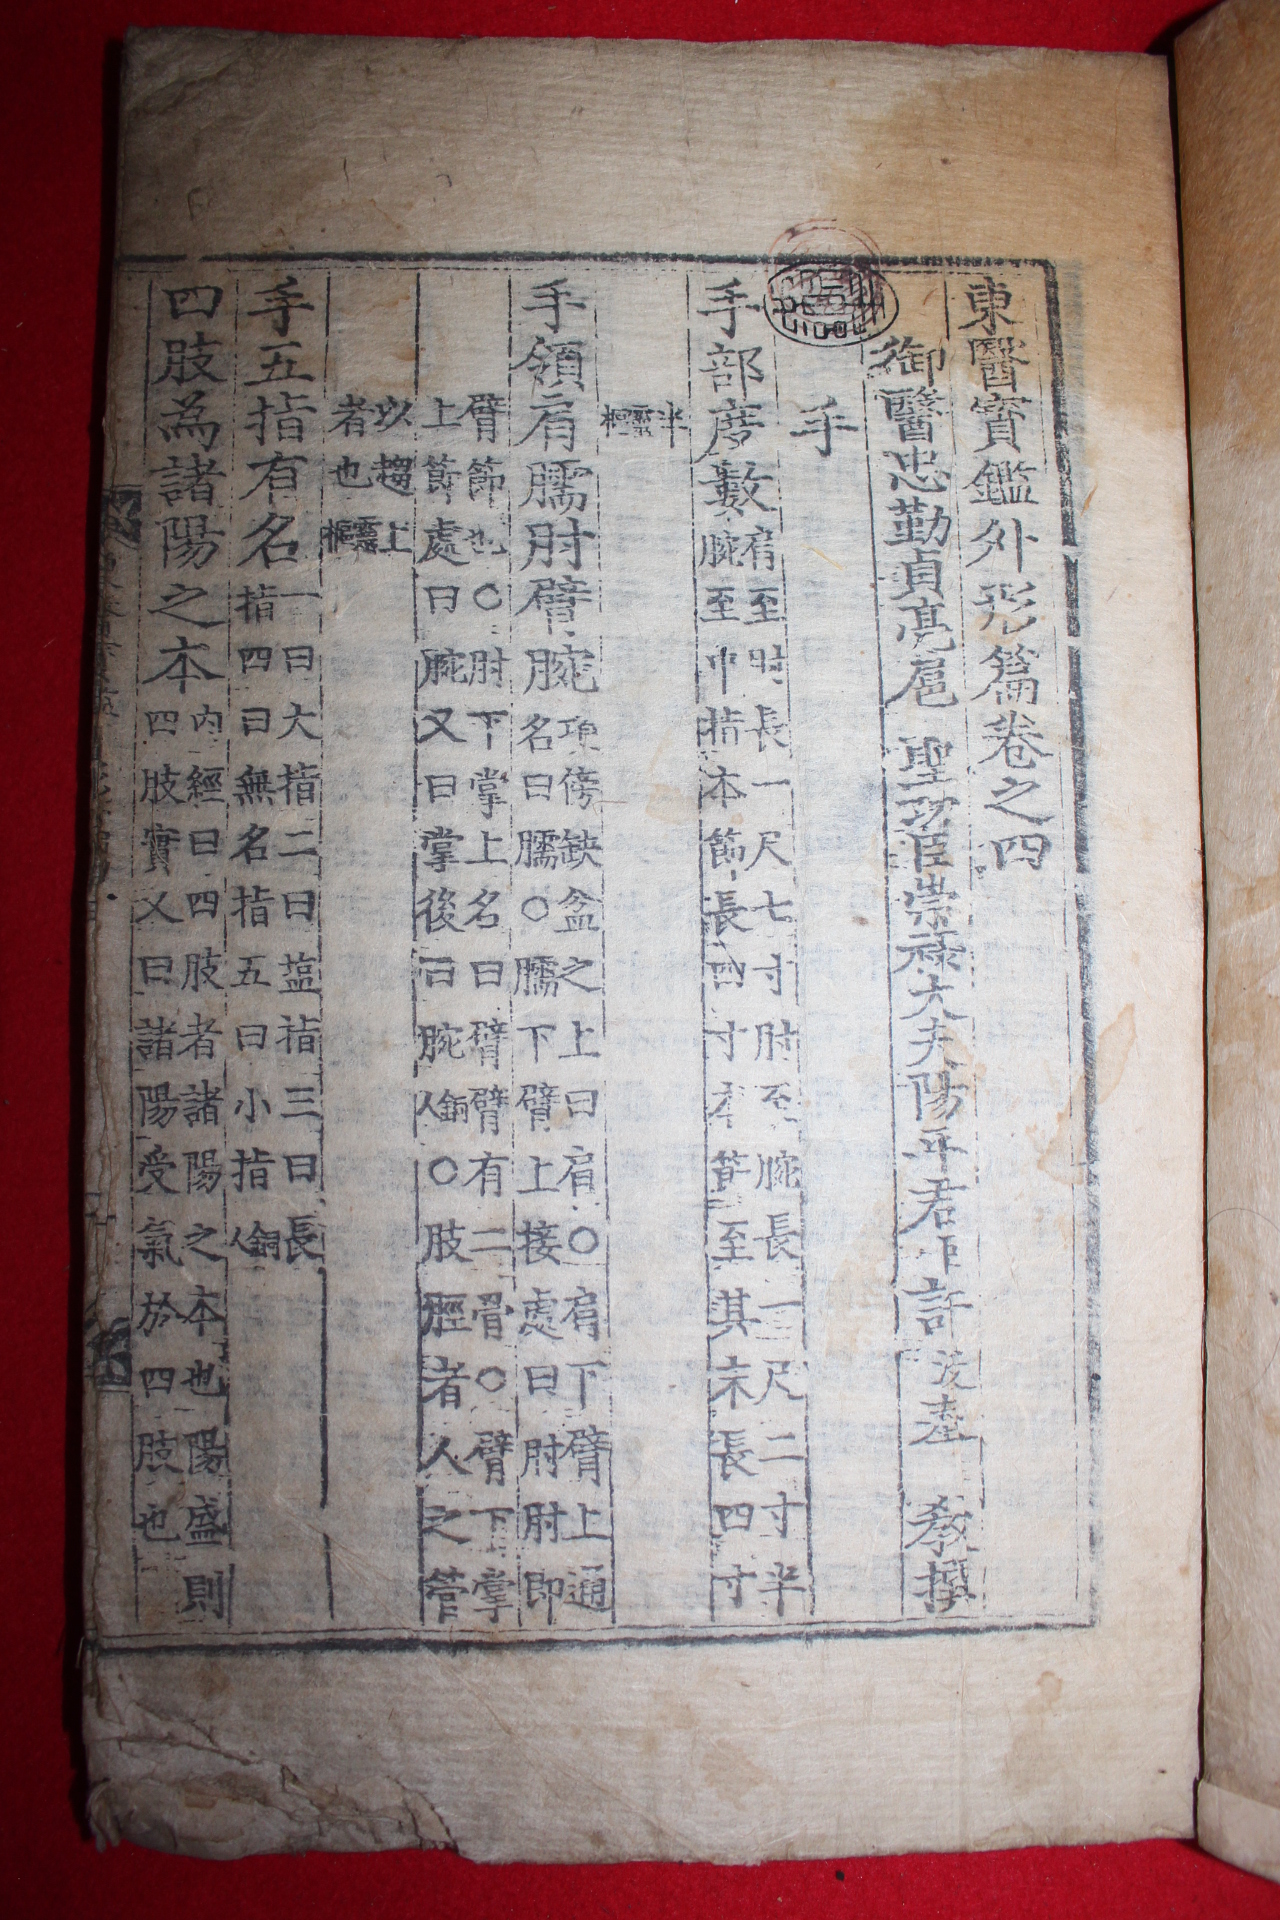 東醫寶鑑外形篇卷之四
御醫忠勤貞亮扈 聖功臣崇祿大夫陽平君臣許浚奉 敎撰
手
手部度數 肩至肘長一尺七寸肘至腕長一尺二寸半
腕至中指本節長四寸本節至其末長四寸
半靈樞
手領肩臑肘臂腕 項傍缺盆之上曰肩○肩下臂上通
名曰臑○臑下臂上接處曰肘肘即
臂節也○肘下掌上名曰臂臂有二骨○臂下掌
上節處曰腕又曰掌後曰腕銅人○肢脛者人之管
以趨上
者也靈樞
手五指有名 一曰大指二曰塩指三曰長
指四曰無名指五曰小指銅人
四肢為諸陽之本 內經曰四肢者諸陽之本也陽盛則
四肢實又曰諸陽受氣於四肢也